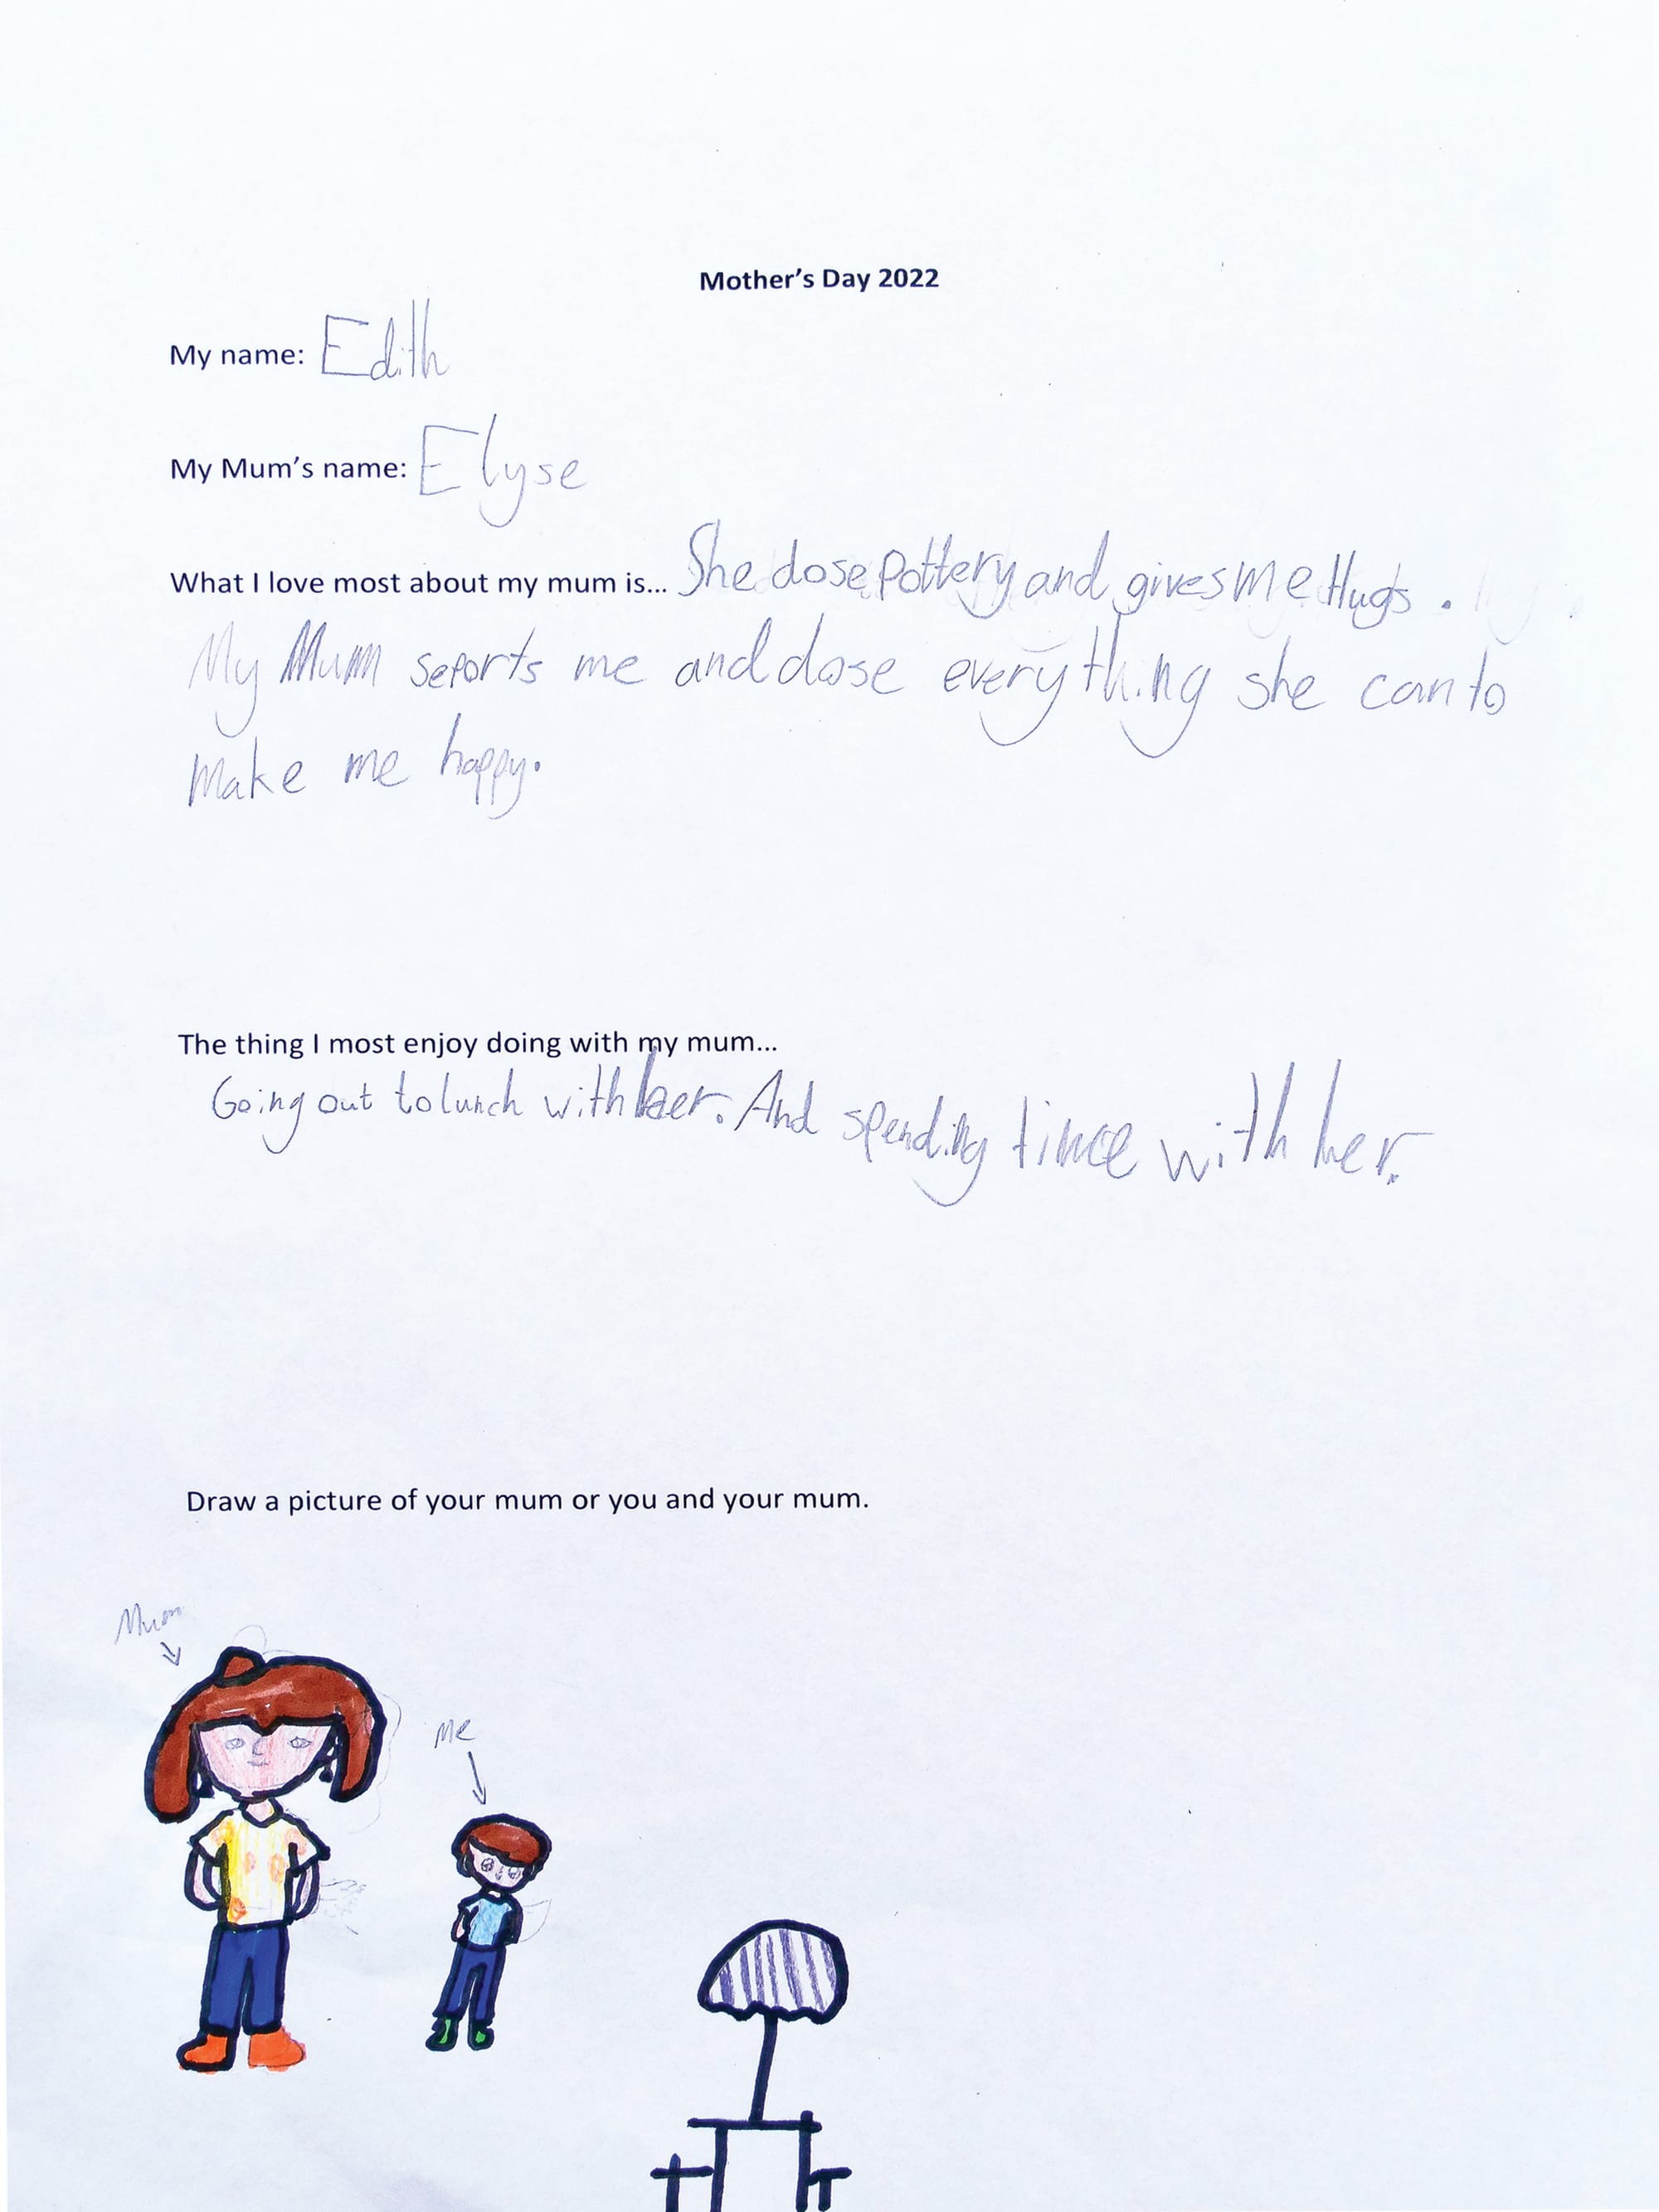 Mother's Day 2022
My name: Edith
My Mum's name: Elyse
What I love most about my mum is... She dose pottery and gives me Hugs.
My Mum seports me and dose everything she can to
make me happy.
The thing I most enjoy doing with my mum...
Going out to lunch with her. And spending time with her.
Draw a picture of your mum or you and your mum.
Mum
Me